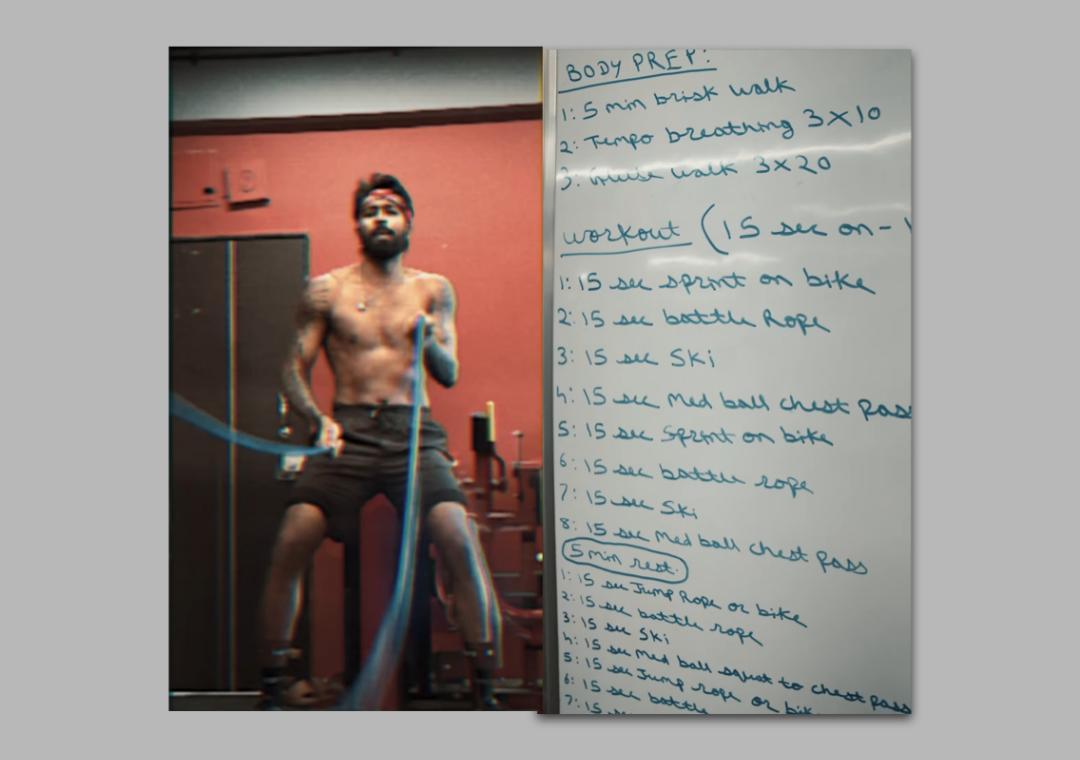 BODY PREP:
1: 5 min brisk walk
2: Tempo breathing 3x10
3: walk 3x20
workout (15 sec on-
1: 15 sec sprint on bike
2: 15 sec battle Rope
3: 15 sec Ski
4: 15 sec Med ball chest pass
5: 15 sec Sprint on bike
6: 15 sec battle rope
7: 15 sec Ski
8: 15 sec Med ball chest pass
5 min rest.
1: 15 sec Jump Rope or bike
2: 15 sec battle rope
3: 15 sec Ski
4: 15 sec Med ball squat to chest pass
5: 15 sec Jump rope or bike
6: 15 sec battle
7: 15 sec